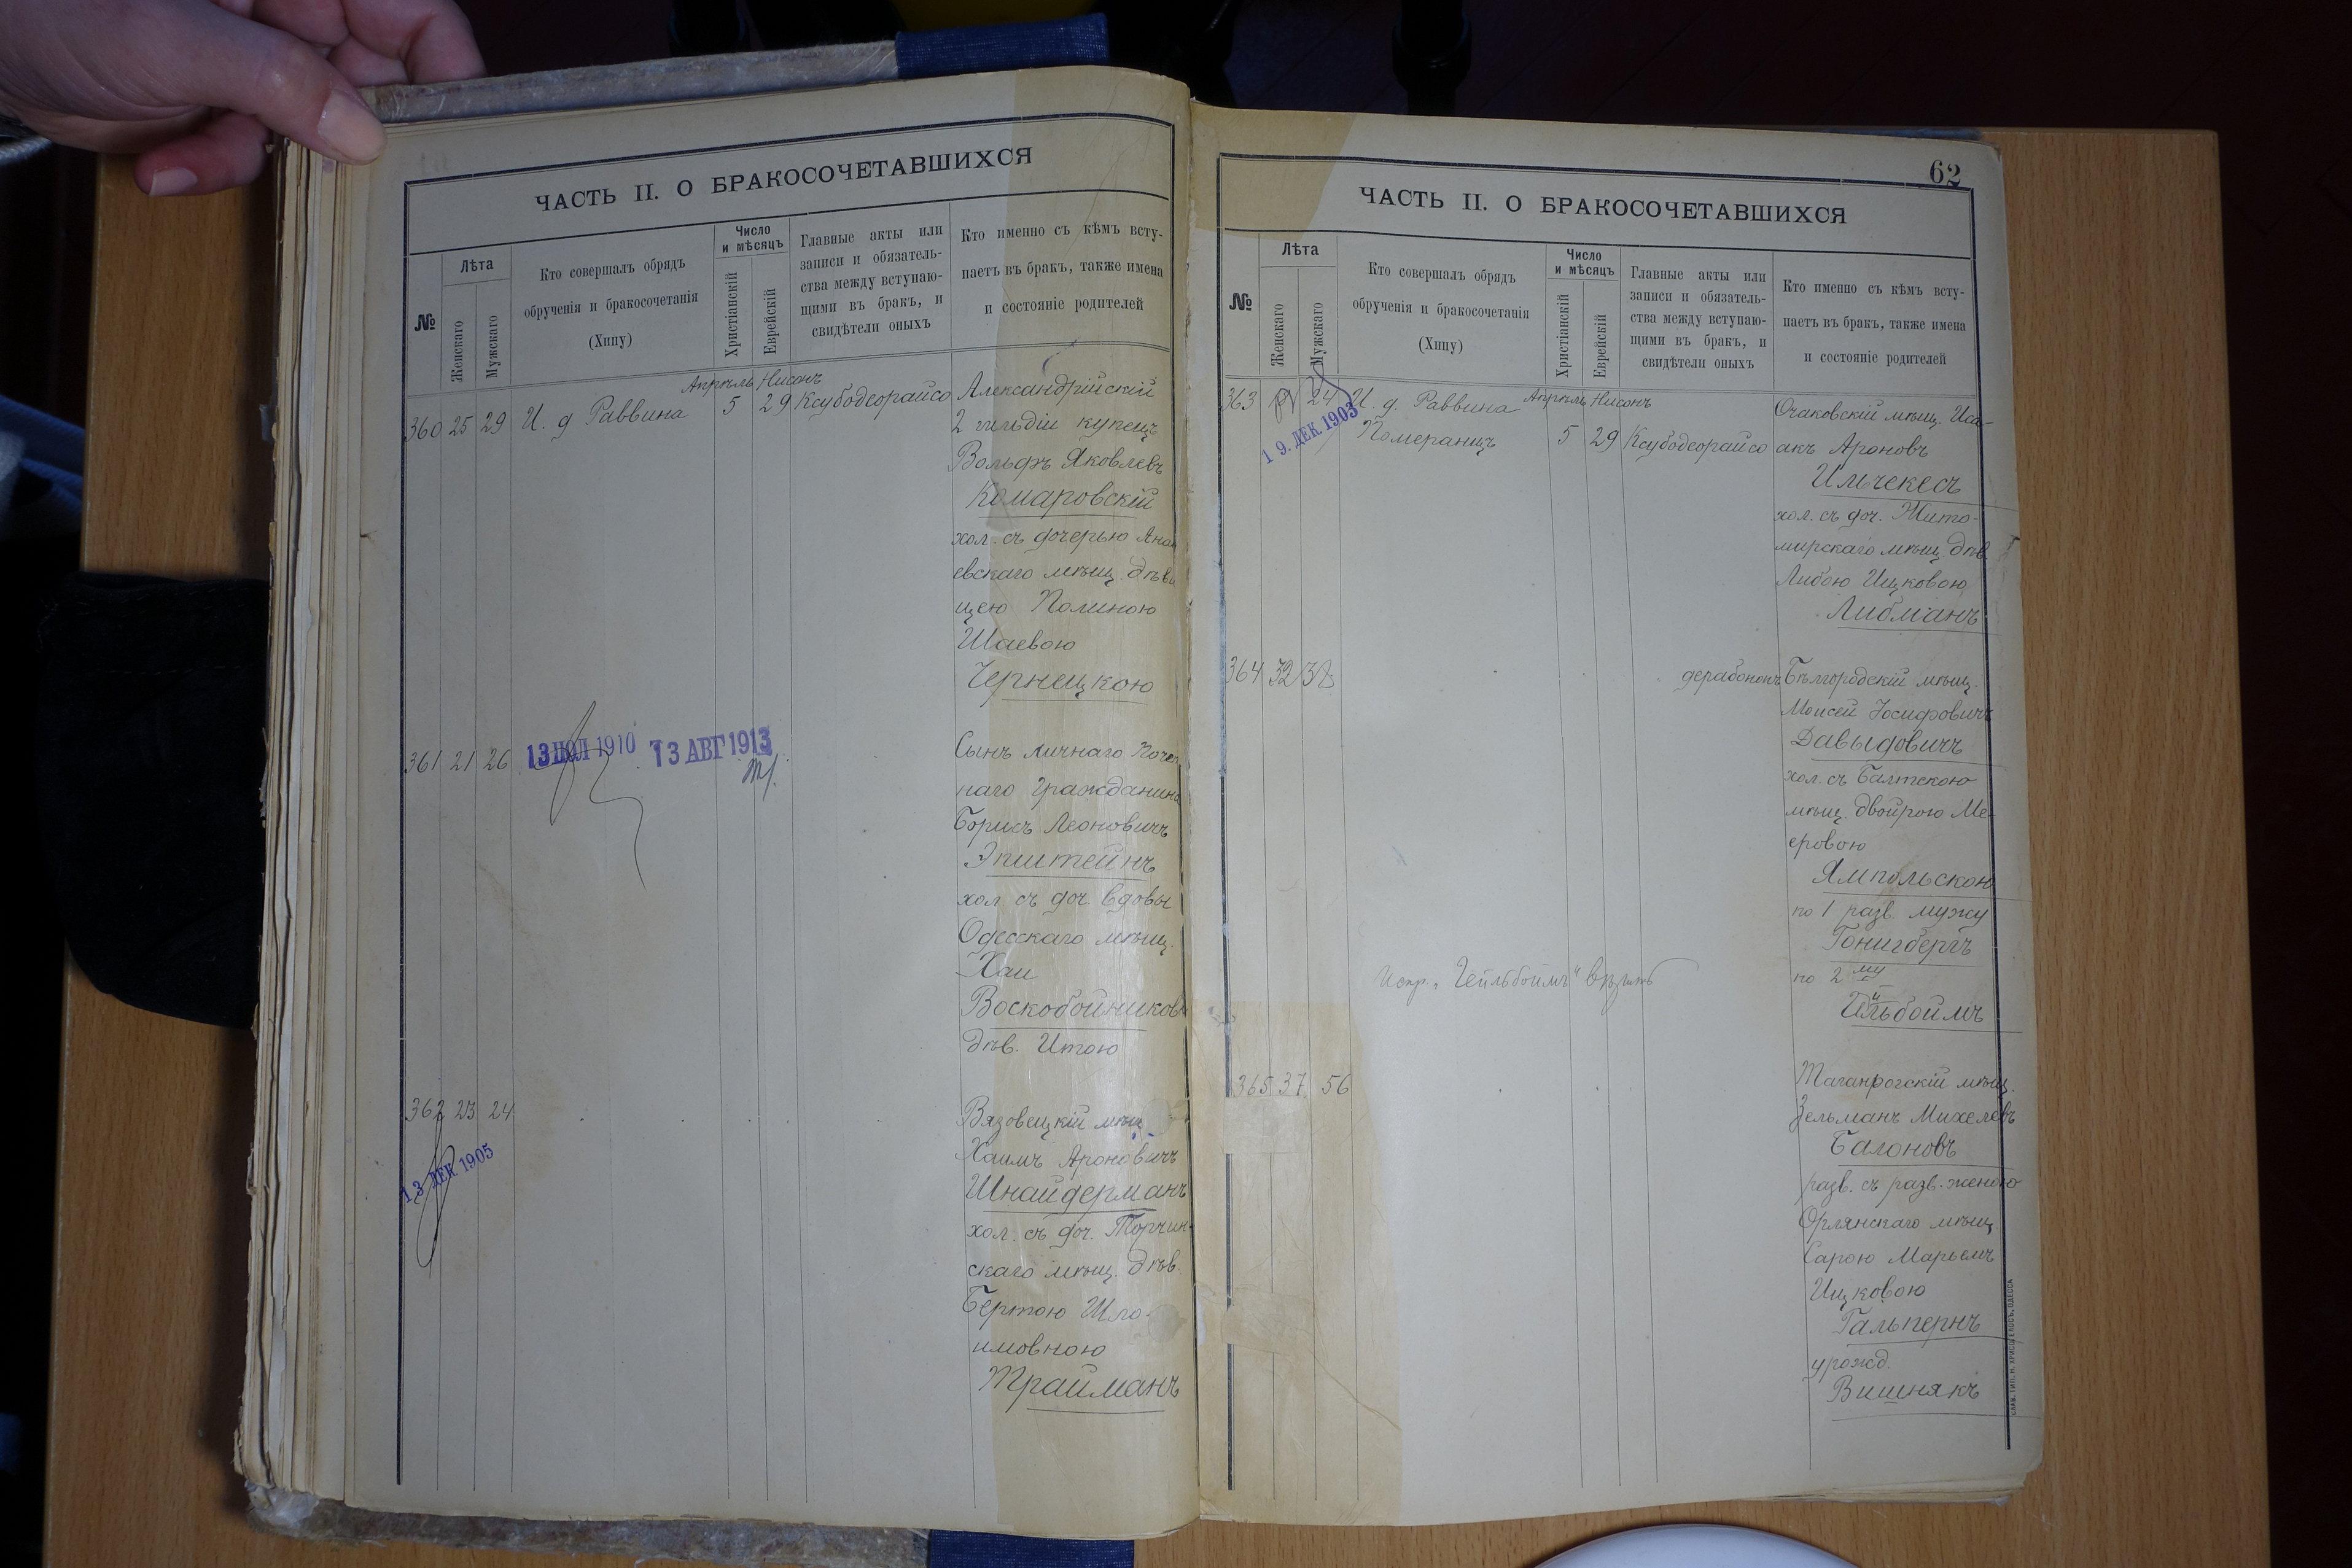 ЧАСТЬ II. О БРАКОСОЧЕТАВШИХСЯ
№
Лѣта
Женскаго
Мужскаго
Кто совершалъ обрядъ
обрученія и бракосочетанія
(Хипу)
Число
и мѣсяцъ
Христіанскій
Еврейскій
Главные акты или
записи и обязатель-
ства между вступаю-
щими въ бракъ, и
свидѣтели оныхъ
Кто именно съ кѣмъ всту-
паетъ въ бракъ, также имена
и состояніе родителей
Апрѣль Нисонъ
360 25 29 И. д Раввина 5 29 Ксубодеорайсо
Александрійскій
2 гильдіи купецъ
Вольфъ Яковлевъ
Комаровскій
хол. съ дочерью Анан
евскаго мѣщ. дѣви
цею Полиною
Шаевою
Чернецкою
361 21 26
13 ИЮЛ 1910 13 АВГ 1913
Сынъ личнаго Почет
наго Гражданина
Борисъ Леоновичъ
Эпштейнъ
хол съ доч. вдовы
Одесскаго мѣщ.
Хаи
Воскобойниковой
дѣв. Итою
362 23 24
13 ДЕК 1905
Вязовецкій мѣщ
Хаимъ Ароновичъ
Шнайдерманъ
хол. съ доч. Торчин-
скаго мѣщ. дѣв.
Бертою Шло-
имовною
Трайманъ
62
ЧАСТЬ II. О БРАКОСОЧЕТАВШИХСЯ
№
Лѣта
Женскаго
Мужскаго
Кто совершалъ обрядъ
обрученія и бракосочетанія
(Хипу)
Число
и мѣсяцъ
Христіанскій
Еврейскій
Главные акты или
записи и обязатель-
ства между вступаю-
щими въ бракъ, и
свидѣтели оныхъ
Кто именно съ кѣмъ всту-
паетъ въ бракъ, также имена
и состояніе родителей
Апрѣль Нисонъ
363 24 И. д. Раввина
Померанцъ 5 29 Ксубодеорайсо
19. ДЕК 1903
Очаковскій мѣщ. Иса-
акъ Ароновъ
Ильчекесъ
хол. съ доч. Жито-
мирскаго мѣщ дѣв.
Либою Ицковою
Либманъ
364 32 38
дерабононъ Бѣлгородскій мѣщ.
Моисей Іосифовичъ
Давыдовичъ
хол. съ Балтскою
мѣщ. Двойрою Ме-
еровою
Ямпольскою
по 1 разв. мужу
Гонигбергъ
по 2 му
Испр. „Гейльбоймъ" вѣрить
365 37 56
Таганрогскій мѣщ.
Зельманъ Михелевъ
Балоновъ
разв. съ разв. женою
Орлянскаго мѣщ
Сарою Марьемъ
Ицковою
Гальпернъ
урожд.
Вишнякъ
СЛАВ. ТИП. Н. ХРИСОГЕЛОСЪ, ОДЕССА